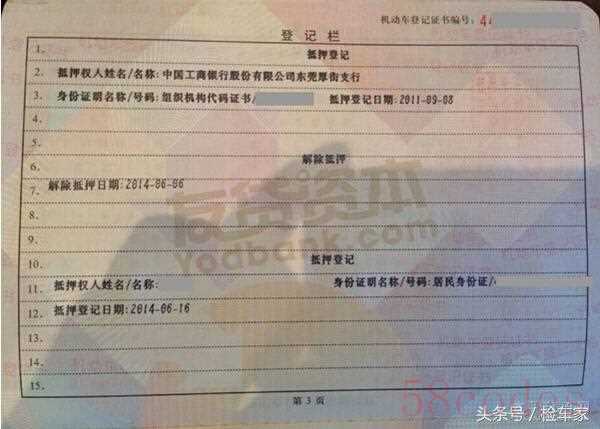 机动车登记证书编号:44
登记栏
1. 抵押登记
2. 抵押权人姓名/名称:中国工商银行股份有限公司东莞厚街支行
3. 身份证明名称/号码:组织机构代码证书/ 抵押登记日期:2011-09-08
4.
5.
6. 解除抵押
7. 解除抵押日期:2014-06-06
8.
9.
10. 抵押登记
11. 抵押权人姓名/名称: 身份证明名称/号码:居民身份证/
12. 抵押登记日期:2014-06-16
13.
14.
15.
第 3 页
友贷资本
Yodbank.com
头条号 / 检车家